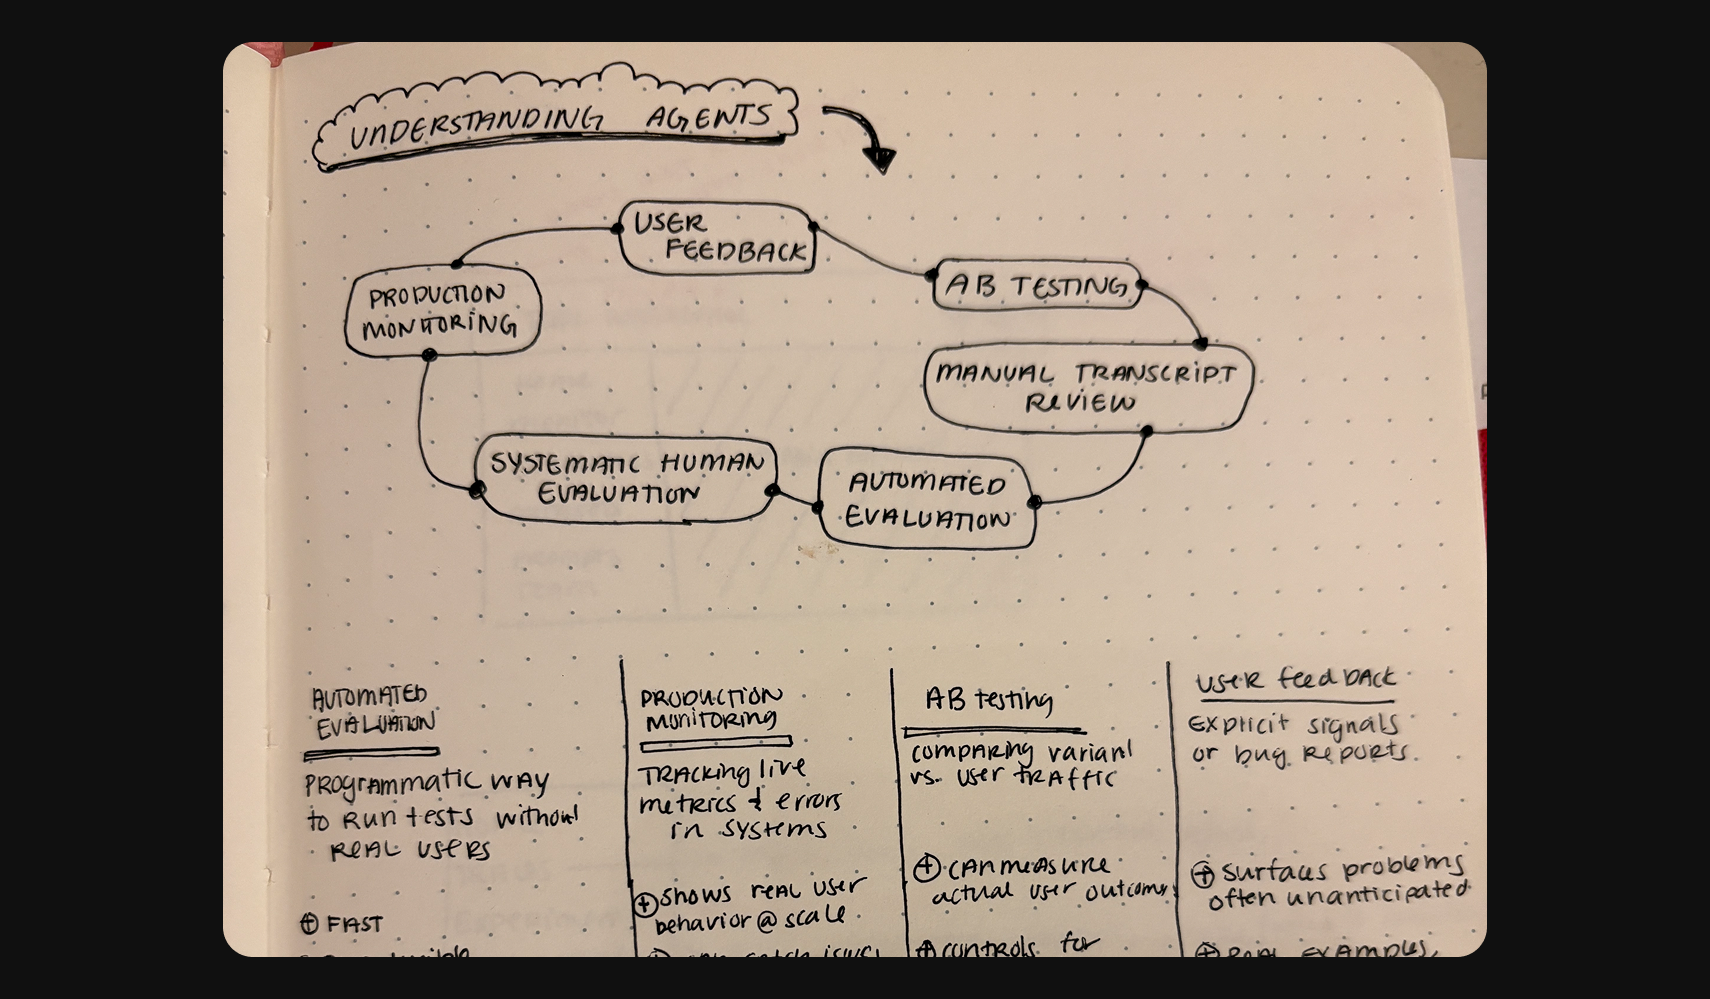 UNDERSTANDING AGENTS
USER
FEEDBACK
AB TESTING
PRODUCTION
MONITORING
MANUAL TRANSCRIPT
REVIEW
SYSTEMATIC HUMAN
EVALUATION
AUTOMATED
EVALUATION
AUTOMATED
EVALUATION
PROGRAMMATIC WAY
to RUN tests without
REAL USERS
⊕ FAST
PRODUCTION
MONITORING
TRACKING live
metrics & errors
in systems
⊕ shows real user
behavior @ scale
AB testing
COMPARING variant
vs. user TRAFFIC
⊕ CAN MEASURE
actual user outcomes
⊕ controls for
user feedback
EXPLICIT signals
or bug REPORTS.
⊕ Surfaces problems
often unanticipated
⊕ REAL EXAMPLES,